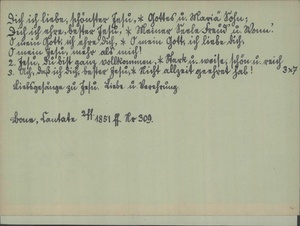 Dich ich liebe, schönster Jesu, * Gottes u. Mariä Sohn;
Dich ich ehre, bester Jesu, * Meiner Seele Freud' u. Wonn'.
O mein Gott, ich ehre dich, * O mein Gott, ich liebe dich,
O mein Jesu, mehr als mich!
2. Jesu, du bist ganz vollkommen, * Stark u. weise, schön u. reich
3. Ach, daß ich dich, bester Jesu, * Nicht allzeit geehret hab! 3x7
Liebsgesänge zu Jesu. Liebe u. Verehrung.
Bone, Cantate 1851 ff. Nr 309.